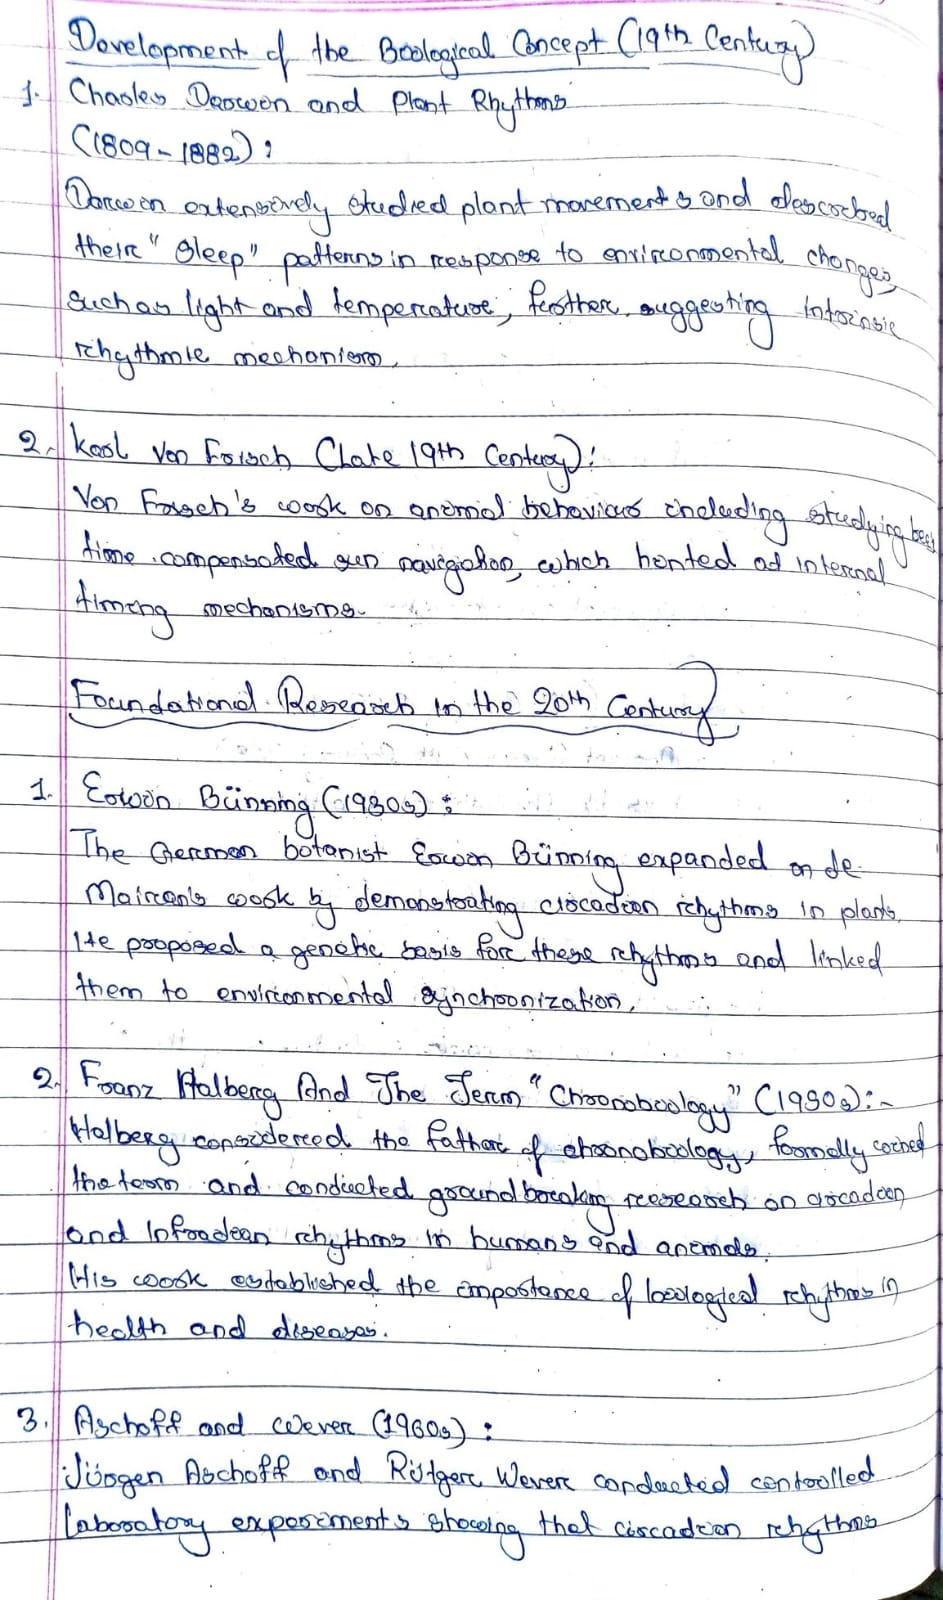 Development of the Biological Concept (19th Century)
1. Charles Darwin and Plant Rhythms
(1809-1882):
Darwin extensively studied plant movements and described
their "Sleep" patterns in response to environmental changes,
such as light and temperature, further suggesting intrinsic
rhythmic mechanism.
2. Karl Von Frisch (Late 19th Century):
Von Frisch's work on animal behaviour including studying bees
time compensated sun navigation, which hinted at internal
timing mechanisms.
Foundational Research in the 20th Century
1. Erwin Bünning (1930s):
The German botanist Erwin Bünning expanded on de
Mairan's work by demonstrating circadian rhythms in plants.
He proposed a genetic basis for these rhythms and linked
them to environmental synchronization.
2. Franz Halberg And The Term "Chronobiology" (1950s):-
Halberg considered the father of chronobiology, formally coined
the term and conducted groundbreaking research on circadian
and Infradian rhythms in humans and animals.
His work established the importance of biological rhythms in
health and diseases.
3. Aschoff and Wever (1960s):
Jürgen Aschoff and Rütger Wever conducted controlled
laboratory experiments showing that circadian rhythms